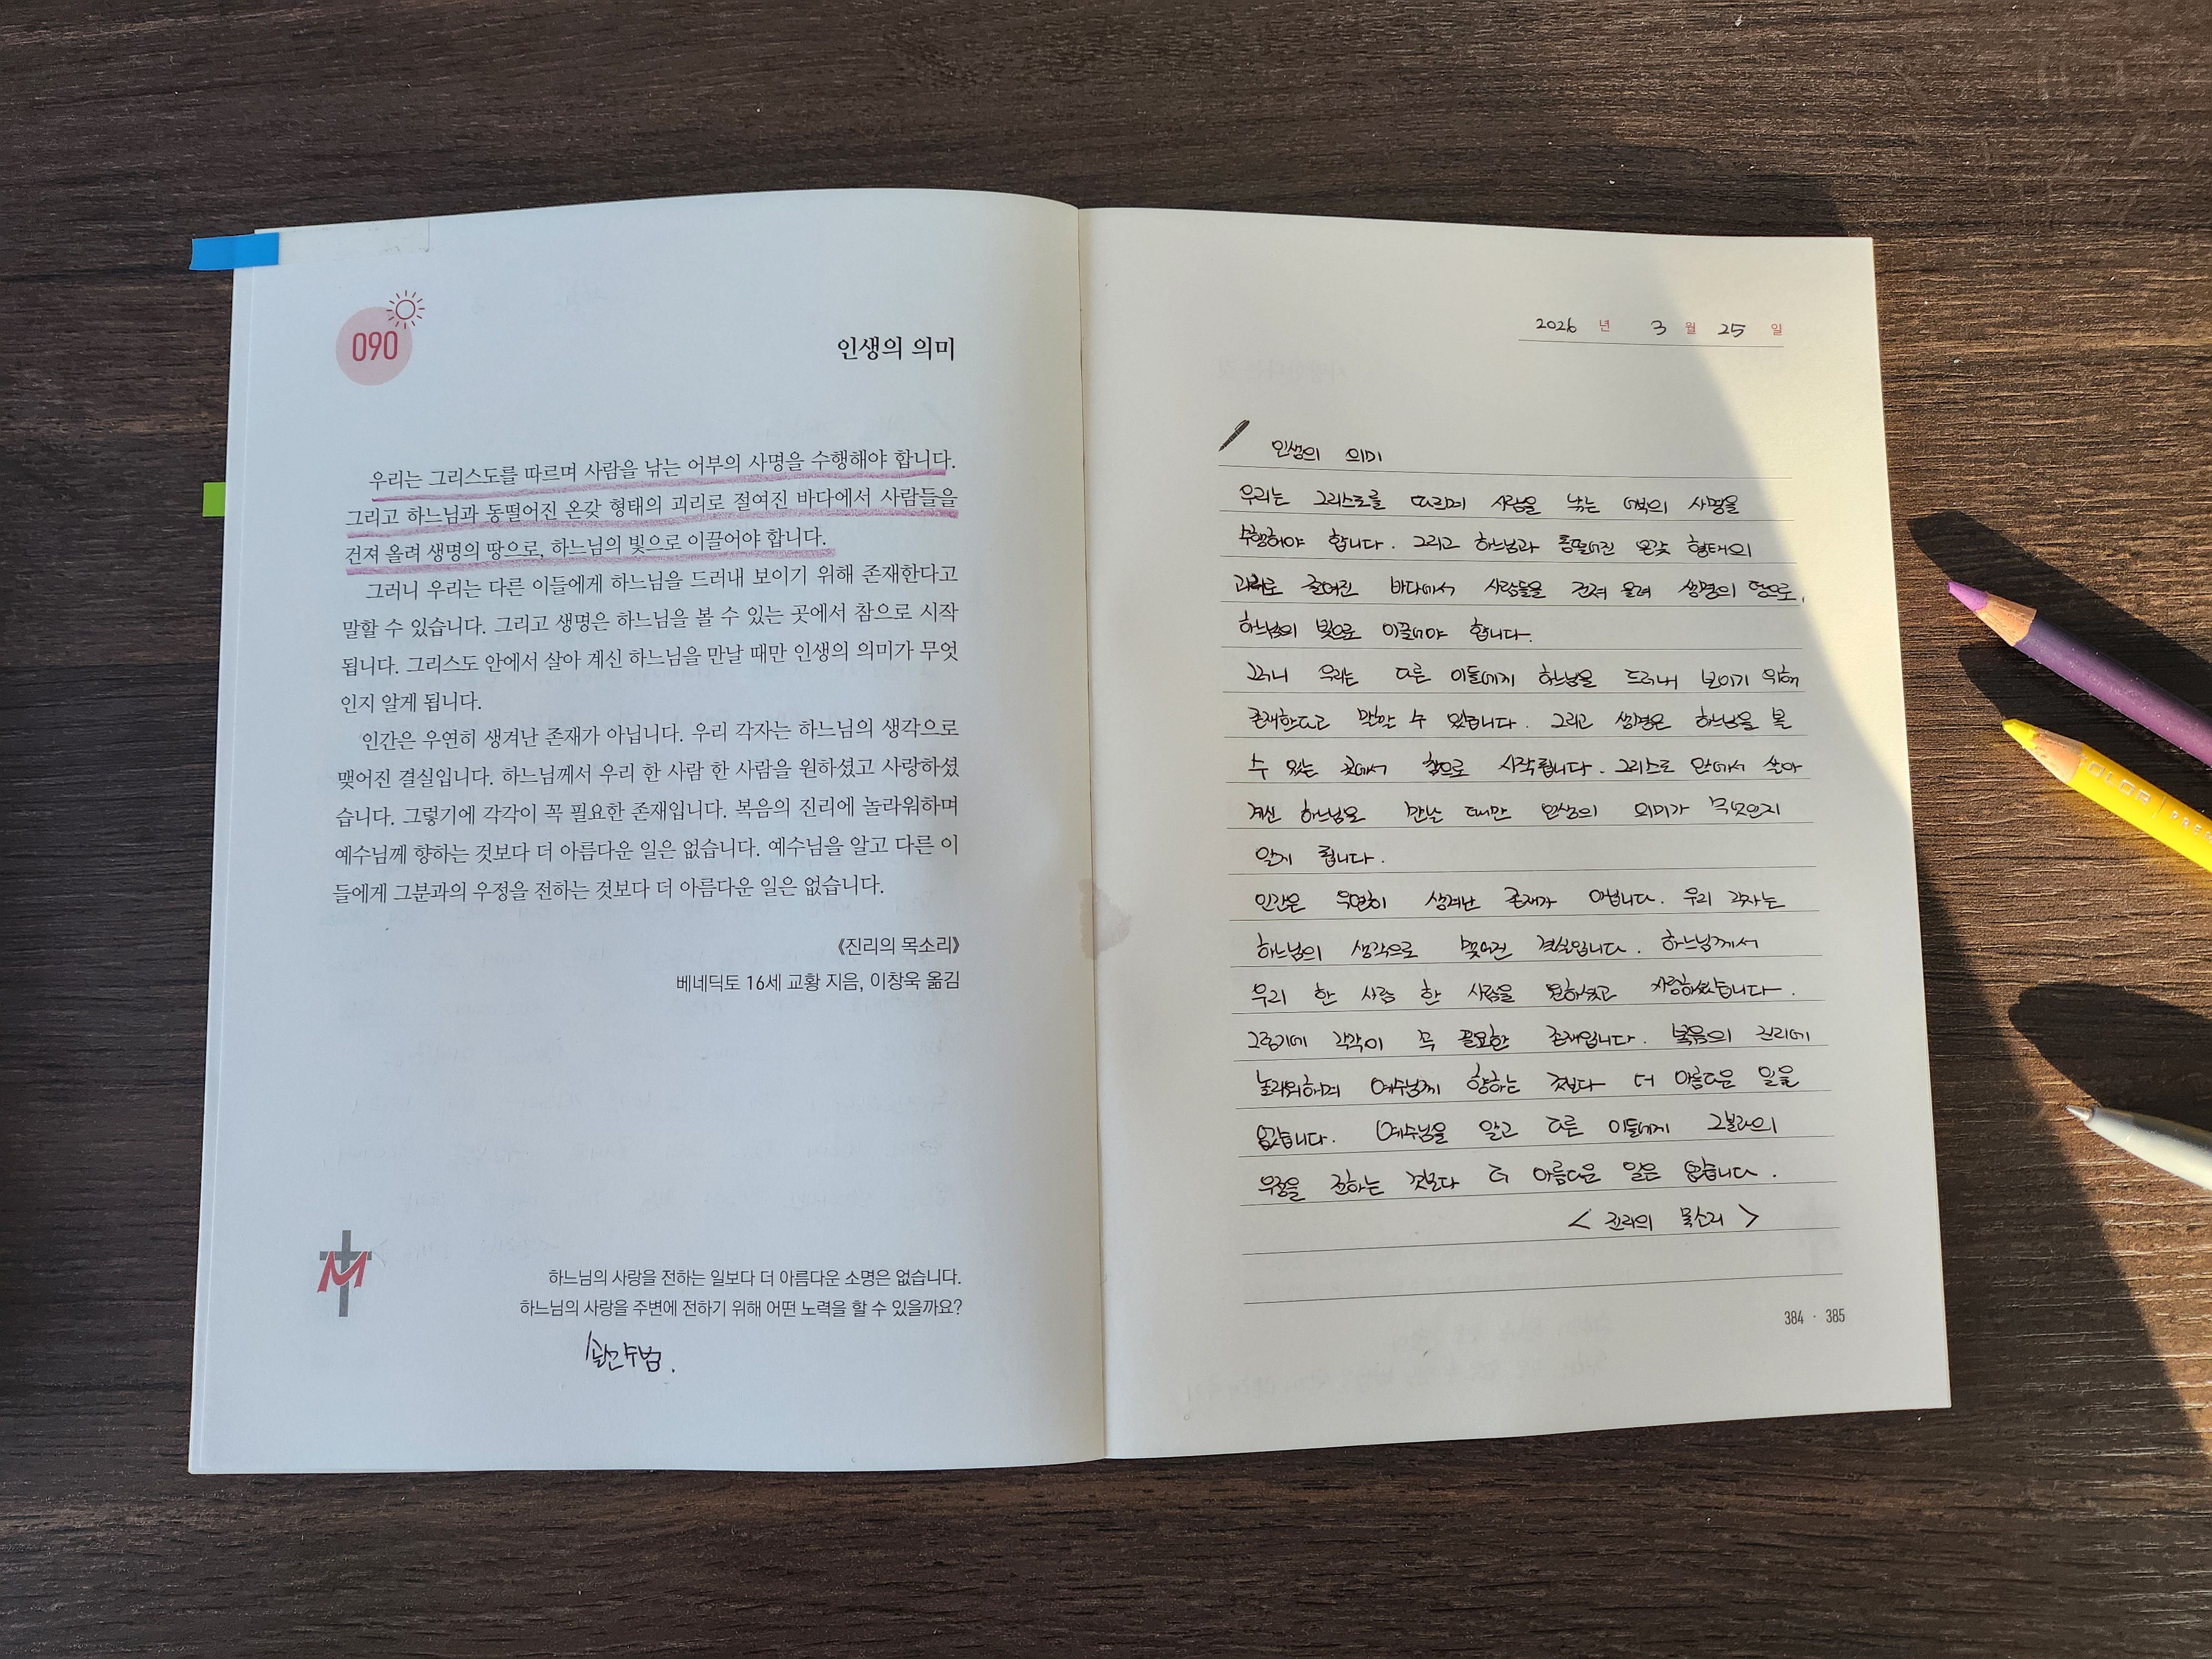 090
인생의 의미
우리는 그리스도를 따르며 사람을 낚는 어부의 사명을 수행해야 합니다.
그리고 하느님과 동떨어진 온갖 형태의 괴리로 절여진 바다에서 사람들을
건져 올려 생명의 땅으로, 하느님의 빛으로 이끌어야 합니다.
그러니 우리는 다른 이들에게 하느님을 드러내 보이기 위해 존재한다고
말할 수 있습니다. 그리고 생명은 하느님을 볼 수 있는 곳에서 참으로 시작
됩니다. 그리스도 안에서 살아 계신 하느님을 만날 때만 인생의 의미가 무엇
인지 알게 됩니다.
인간은 우연히 생겨난 존재가 아닙니다. 우리 각자는 하느님의 생각으로
맺어진 결실입니다. 하느님께서 우리 한 사람 한 사람을 원하셨고 사랑하셨
습니다. 그렇기에 각각이 꼭 필요한 존재입니다. 복음의 진리에 놀라워하며
예수님께 향하는 것보다 더 아름다운 일은 없습니다. 예수님을 알고 다른 이
들에게 그분과의 우정을 전하는 것보다 더 아름다운 일은 없습니다.
《진리의 목소리》
베네딕토 16세 교황 지음, 이창욱 옮김
M
하느님의 사랑을 전하는 일보다 더 아름다운 소명은 없습니다.
하느님의 사랑을 주변에 전하기 위해 어떤 노력을 할 수 있을까요?
2026 년 3 월 25 일
인생의 의미
우리는 그리스도를 따르며 사람을 낚는 어부의 사명을
수행해야 합니다. 그리고 하느님과 동떨어진 온갖 형태의
괴리로 절여진 바다에서 사람들을 건져 올려 생명의 땅으로,
하느님의 빛으로 이끌어야 합니다.
그러니 우리는 다른 이들에게 하느님을 드러내 보이기 위해
존재한다고 말할 수 있습니다. 그리고 생명은 하느님을 볼
수 있는 곳에서 참으로 시작됩니다. 그리스도 안에서 살아
계신 하느님을 만날 때만 인생의 의미가 무엇인지
알게 됩니다.
인간은 우연히 생겨난 존재가 아닙니다. 우리 각자는
하느님의 생각으로 맺어진 결실입니다. 하느님께서
우리 한 사람 한 사람을 원하셨고 사랑하셨습니다.
그렇기에 각각이 꼭 필요한 존재입니다. 복음의 진리에
놀라워하며 예수님께 향하는 것보다 더 아름다운 일은
없습니다. 예수님을 알고 다른 이들에게 그분과의
우정을 전하는 것보다 더 아름다운 일은 없습니다.
< 진리의 목소리 >
384 · 385